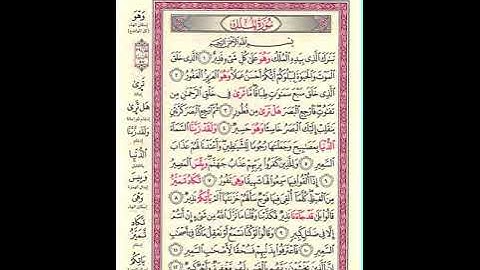 سُورَةُ المُلْكِ
بِسْمِ اللَّهِ الرَّحْمَٰنِ الرَّحِيمِ
تَبَارَكَ الَّذِي بِيَدِهِ الْمُلْكُ وَهُوَ عَلَى كُلِّ شَيْءٍ قَدِيرٌ ١ الَّذِي خَلَقَ
الْمَوْتَ وَالْحَيَاةَ لِيَبْلُوَكُمْ أَيُّكُمْ أَحْسَنُ عَمَلًا وَهُوَ الْعَزِيزُ الْغَفُورُ ٢
الَّذِي خَلَقَ سَبْعَ سَمَاوَاتٍ طِبَاقًا مَّا تَرَى فِي خَلْقِ الرَّحْمَنِ مِن
تَفَاوُتٍ فَارْجِعِ الْبَصَرَ هَلْ تَرَى مِن فُطُورٍ ٣ ثُمَّ ارْجِعِ الْبَصَرَ كَرَّتَيْنِ
يَنقَلِبْ إِلَيْكَ الْبَصَرُ خَاسِئًا وَهُوَ حَسِيرٌ ٤ وَلَقَدْ زَيَّنَّا السَّمَاءَ
الدُّنْيَا بِمَصَابِيحَ وَجَعَلْنَاهَا رُجُومًا لِّلشَّيَاطِينِ وَأَعْتَدْنَا لَهُمْ عَذَابَ
السَّعِيرِ ٥ وَلِلَّذِينَ كَفَرُوا بِرَبِّهِمْ عَذَابُ جَهَنَّمَ وَبِئْسَ الْمَصِيرُ
٦ إِذَا أُلْقُوا فِيهَا سَمِعُوا لَهَا شَهِيقًا وَهِيَ تَفُورُ ٧ تَكَادُ تَمَيَّزُ
مِنَ الْغَيْظِ كُلَّمَا أُلْقِيَ فِيهَا فَوْجٌ سَأَلَهُمْ خَزَنَتُهَا أَلَمْ يَأْتِكُمْ نَذِيرٌ ٨
قَالُوا بَلَى قَدْ جَاءَنَا نَذِيرٌ فَكَذَّبْنَا وَقُلْنَا مَا نَزَّلَ اللَّهُ مِن شَيْءٍ إِنْ أَنتُمْ
إِلَّا فِي ضَلَالٍ كَبِيرٍ ٩ وَقَالُوا لَوْ كُنَّا نَسْمَعُ أَوْ نَعْقِلُ مَا كُنَّا فِي أَصْحَابِ
السَّعِيرِ ١٠ فَاعْتَرَفُوا بِذَنبِهِمْ فَسُحْقًا لِّأَصْحَابِ السَّعِيرِ ١١
إِنَّ الَّذِينَ يَخْشَوْنَ رَبَّهُم بِالْغَيْبِ لَهُم مَّغْفِرَةٌ وَأَجْرٌ كَبِيرٌ ١٢
وَهُوَ
تَرَى
هَلْ تَرَى
وَلَقَدْ زَيَّنَّا
الدُّنْيَا
وَبِيسَ
وَهْيَ
تَكَاد
تَّمَيَّزُ
يَاتِكُمْ